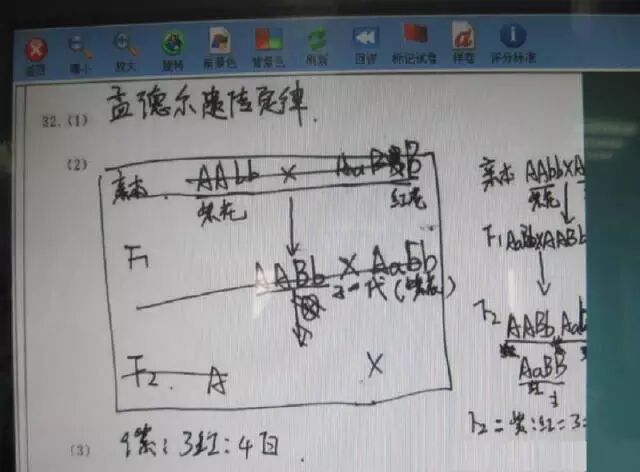 返回 缩小 放大 旋转 前景色 背景色 刷新 回评 标记试卷 样卷 评分标准
32.(1) 孟德尔遗传定律.
(2)
亲本 AAbb × AaBB
紫花 红花
F1
AABb × AaBb
F2. A ×
(3) 9紫:3红:4白
亲本 AAbb×A
紫花
F1 AaBb×AABb
F2
AABb,Aab
AaBB
红
F2=紫:红=3: